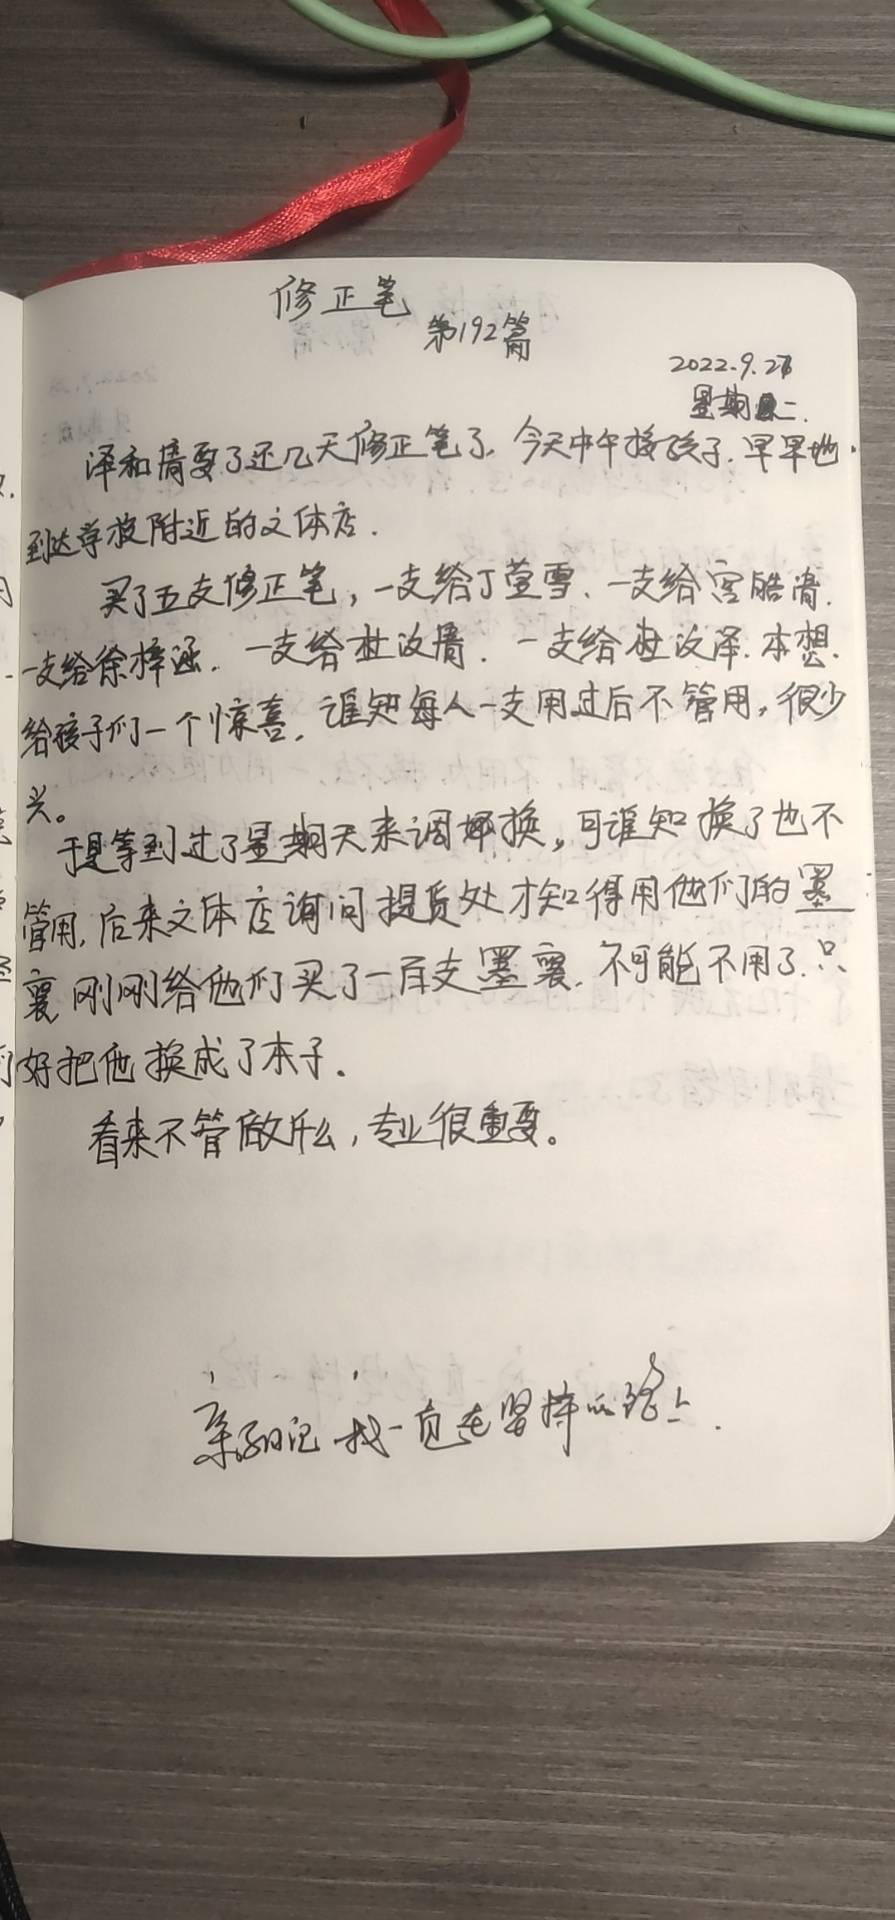 修正笔
第192篇
2022.9.27
星期二.
泽和清要了还几天修正笔了,今天中午接孩子.早早地
到达学校附近的文体店.
买了五支修正笔,一支给丁萱雪、一支给宫皓
一支给徐梓涵.一支给杜汶清.一支给杜汶泽.本想.
给孩子们一个惊喜,谁知每人一支用过后不管用,很少
兴。
于是等到过了星期天来调换,可谁知换了也不
管用,后来文体店询问提货处才知得用他们的墨
襄,刚刚给他们买了一百支墨襄.不可能不用了.只
好把他换成了本子.
看来不管做什么,专业很重要。
亲子日记 我一直在坚持的路上.